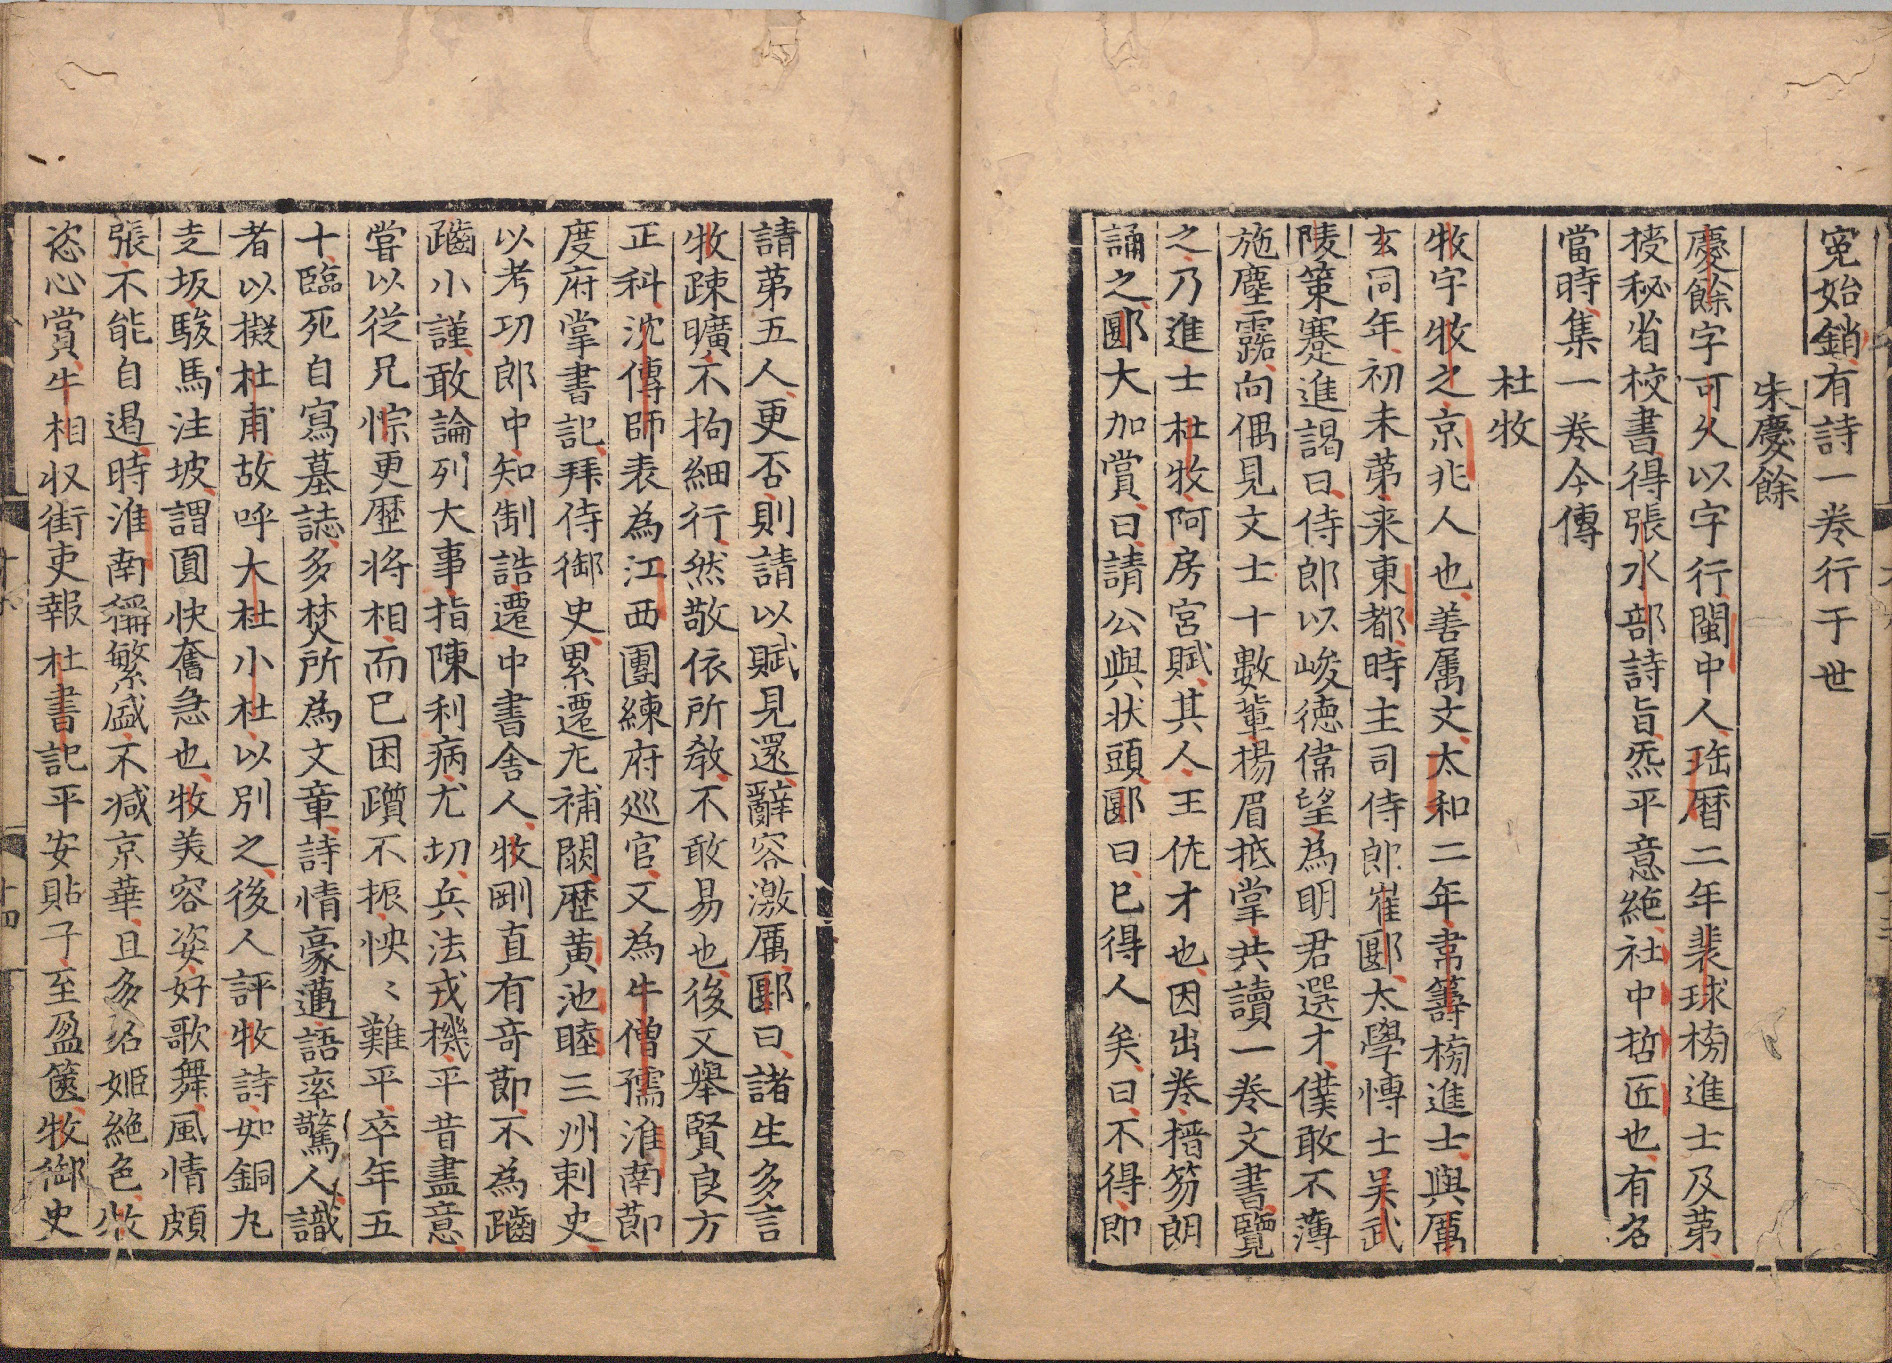 冤始銷有詩一卷行于世
朱慶餘
慶餘字可久以字行閩中人珤曆二年裴球榜進士及第
授秘省校書得張水部詩旨氣平意絶社中哲匠也有名
當時集一卷今傳
杜牧
牧字牧之京兆人也善属文太和二年韋籌榜進士與厲
玄同年初未苐来東都時主司侍郎崔郾太學愽士吴武
陵策蹇進謁曰侍郎以峻德偉望為明君選才僕敢不薄
施塵露向偶見文士十數輩揚眉抵掌共讀一卷文書覽
之乃進士杜牧阿房宮賦其人王佐才也因出卷搢笏朗
誦之郾大加賞曰請公與状頭郾曰已得人矣曰不得即
請苐五人更否則請以賦見還辭容激厲郾曰諸生多言
牧踈曠不拘細行然敬依所教不敢易也後又舉賢良方
正科沈傳師表為江西團練府巡官又為牛僧孺淮南節
度府掌書記拜侍御史累遷左補闕歷黄池睦三州刺史
以考功郎中知制誥遷中書舎人牧剛直有竒節不為齪
齪小謹敢論列大事指陳利病尤切兵法戎機平昔盡意
嘗以從兄悰更歷将相而已困躓不振怏〻難平卒年五
十臨死自寫墓誌多焚所為文章詩情豪邁語率驚人識
者以擬杜甫故呼大杜小杜以別之後人評牧詩如銅丸
走坂駿馬注坡謂圓快奮急也牧美容姿好歌舞風情頗
張不能自遏時淮南稱繁盛不减京華且多名姬絶色牧
恣心賞牛相収街吏報杜書記平安貼子至盈篋牧御史